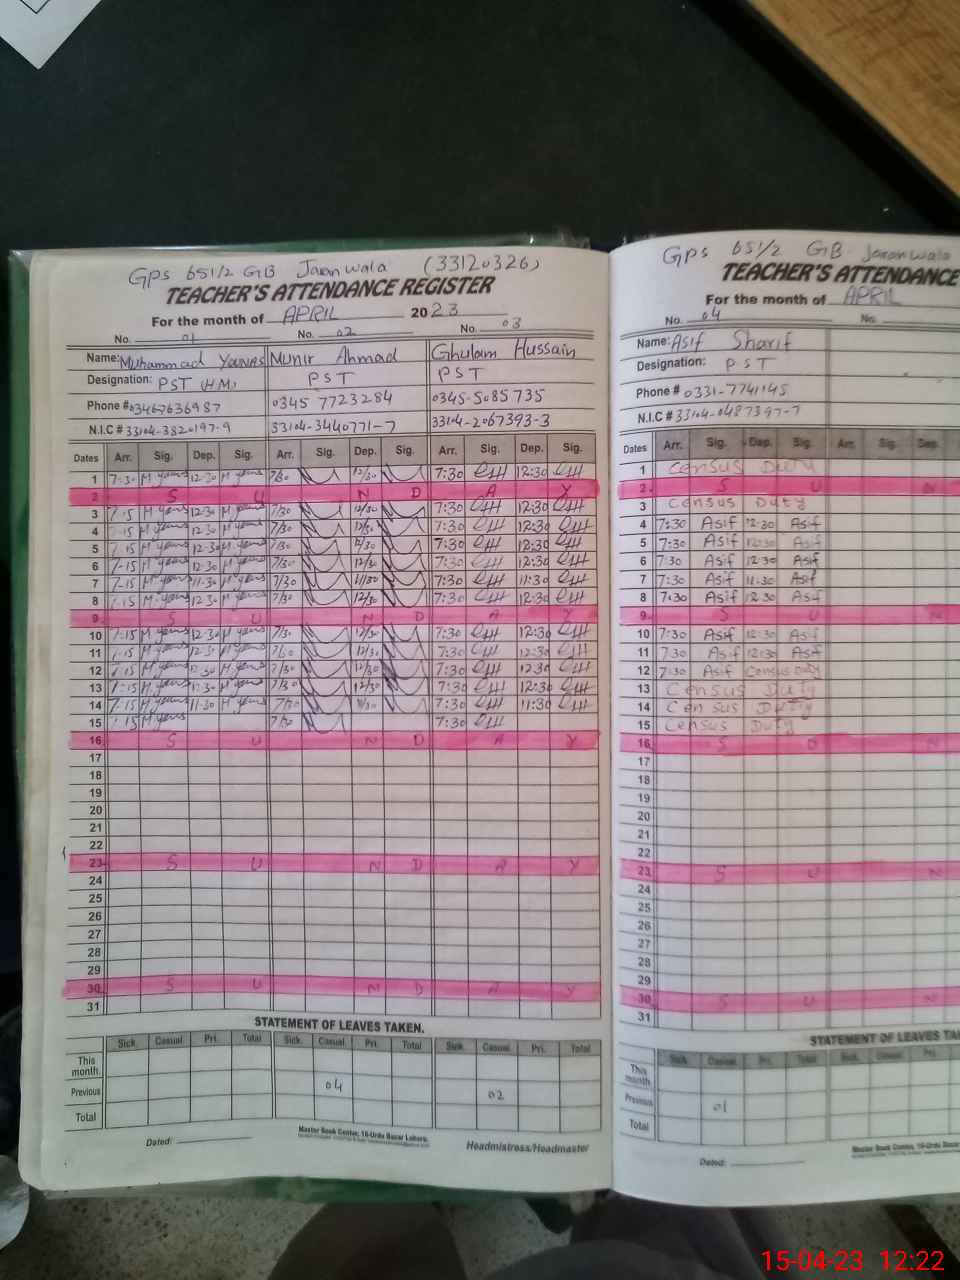 GPS 651/2 GB Jaranwala (33120326)
TEACHER'S ATTENDANCE REGISTER
For the month of APRIL 2023
No. 01 No. 02 No. 03
Name: Muhammad Younas Munir Ahmad Ghulam Hussain
Designation: PST (HM) PST PST
Phone # 03467636987 0345 7723284 0345-5085735
N.I.C # 33104-3820197-9 33104-3440771-7 33104-2067393-3
Dates Arr. Sig. Dep. Sig. Arr. Sig. Dep. Sig. Arr. Sig. Dep. Sig.
1 7-30 M younas 12-30 M younas 7/30 12/30 7:30 12:30
2 S U N D A Y
3 7-15 M younas 12-30 M younas 7/30 12/30 7:30 12:30
4 7-15 M younas 12-30 M younas 7/30 12/30 7:30 12:30
5 7-15 M younas 12-30 M younas 7/30 12/30 7:30 12:30
6 7-15 M younas 12-30 M younas 7/30 12/30 7:30 12:30
7 7-15 M younas 11-30 M younas 7/30 11/30 7:30 11:30
8 7-15 M younas 12-30 M younas 7/30 12/30 7:30 12:30
9 S U N D A Y
10 7-15 M younas 12-30 M younas 7/30 12/30 7:30 12:30
11 7-15 M younas 12-30 M younas 7/30 12/30 7:30 12:30
12 7-15 M younas 12-30 M younas 7/30 12/30 7:30 12:30
13 7-15 M younas 12-30 M younas 7/30 12/30 7:30 12:30
14 7-15 M younas 11-30 M younas 7/30 11/30 7:30 11:30
15 7-15 M younas 7/30 7:30
16 S U N D A Y
17
18
19
20
21
22
23 S U N D A Y
24
25
26
27
28
29
30 S U N D A Y
31
STATEMENT OF LEAVES TAKEN.
Sick. Casual Pri. Total Sick. Casual Pri. Total Sick. Casual Pri. Total
This month.
Previous 04 02
Total
Master Book Center, 16-Urdu Bazar Lahore.
Dated: Headmistress/Headmaster
GPS 651/2 GB Jaranwala
TEACHER'S ATTENDANCE
For the month of APRIL
No. 04 No.
Name: Asif Sharif
Designation: PST
Phone # 0331-7741145
N.I.C # 33104-0487397-7
Dates Arr. Sig. Dep. Sig. Arr. Sig. Dep.
1 Census Duty
2 S U N
3 Census Duty
4 7:30 Asif 12:30 Asif
5 7:30 Asif 12:30 Asif
6 7:30 Asif 12:30 Asif
7 7:30 Asif 11:30 Asif
8 7:30 Asif 12:30 Asif
9 S U N
10 7:30 Asif 12:30 Asif
11 7:30 Asif 12:30 Asif
12 7:30 Asif Census Duty
13 Census Duty
14 Census Duty
15 Census Duty
16 S U N
17
18
19
20
21
22
23 S U N
24
25
26
27
28
29
30 S U N
31
STATEMENT OF LEAVES TA
Sick. Casual Pri. Total Sick. Casual Pri.
This month.
Previous 01
Total
Master Book Center, 16-Urdu Bazar
Dated:
15-04-23 12:22